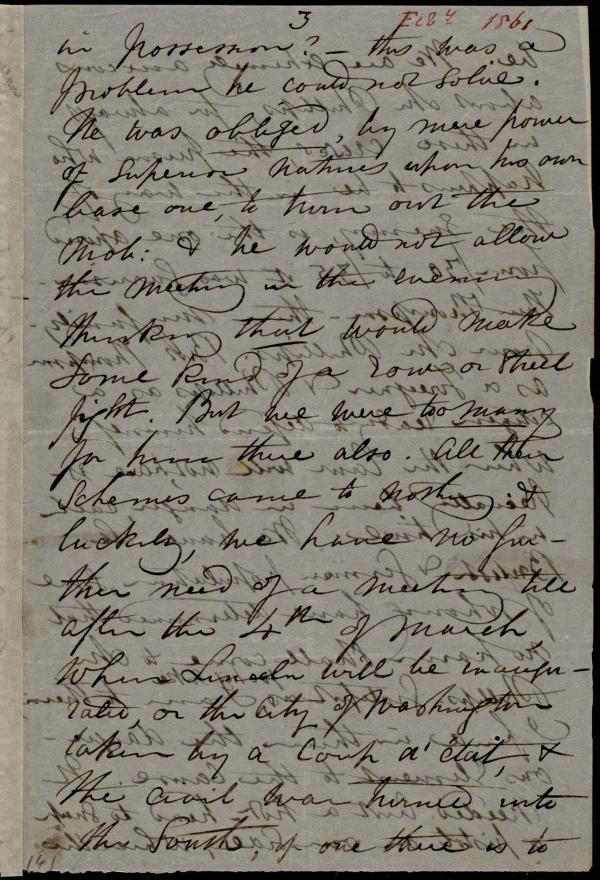 3 Feb 4 1861
in possession? — this was a
problem he could not solve.
He was obliged, by mere power
of Superior natures upon his own
base one, to turn out the
Mob: & he would not allow
the meeting in the evening
thinking that would make
some kind of a row or street
fight. But we were too many
for him there also. All their
Schemes came to nothing: &
luckily, we have no fur-
ther need of a meeting till
after the 4th of March,
When Lincoln will be inaugu-
rated, or the city of Washington
taken by a Coup d'état, &
the civil war turned into
the South, if one there is to
141